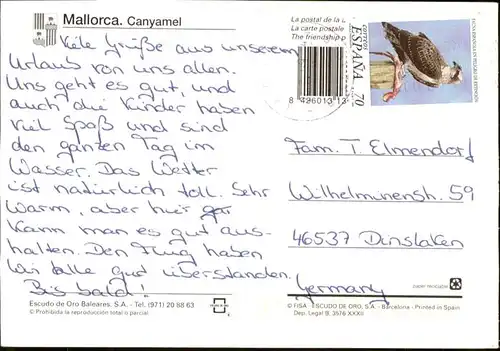 Mallorca. Canyamel
Viele Grüße aus unserem
Urlaub von uns allen.
Uns geht es gut, und
auch die Kinder haben
viel Spaß und sind
den ganzen Tag im
Wasser. Das Wetter
ist natürlich toll. Sehr
warm, aber hier
kann man es gut aus-
halten. Den Flug haben
wir alle gut überstanden.
Bis bald!
Escudo de Oro Baleares. S.A. - Tel. (971) 20 88 63
© Prohibida la reproducción total o parcial
La postal de la
La carte postale
The friendship
8 426013 13
correos
ESPAÑA
70
Fam. T. Elmendorf
Wilhelminenstr. 59
46537 Dinslaken
Germany
papel reciclable
© FISA - ESCUDO DE ORO, S.A. - Barcelona - Printed in Spain
Dep. Legal B. 3576 XXXII